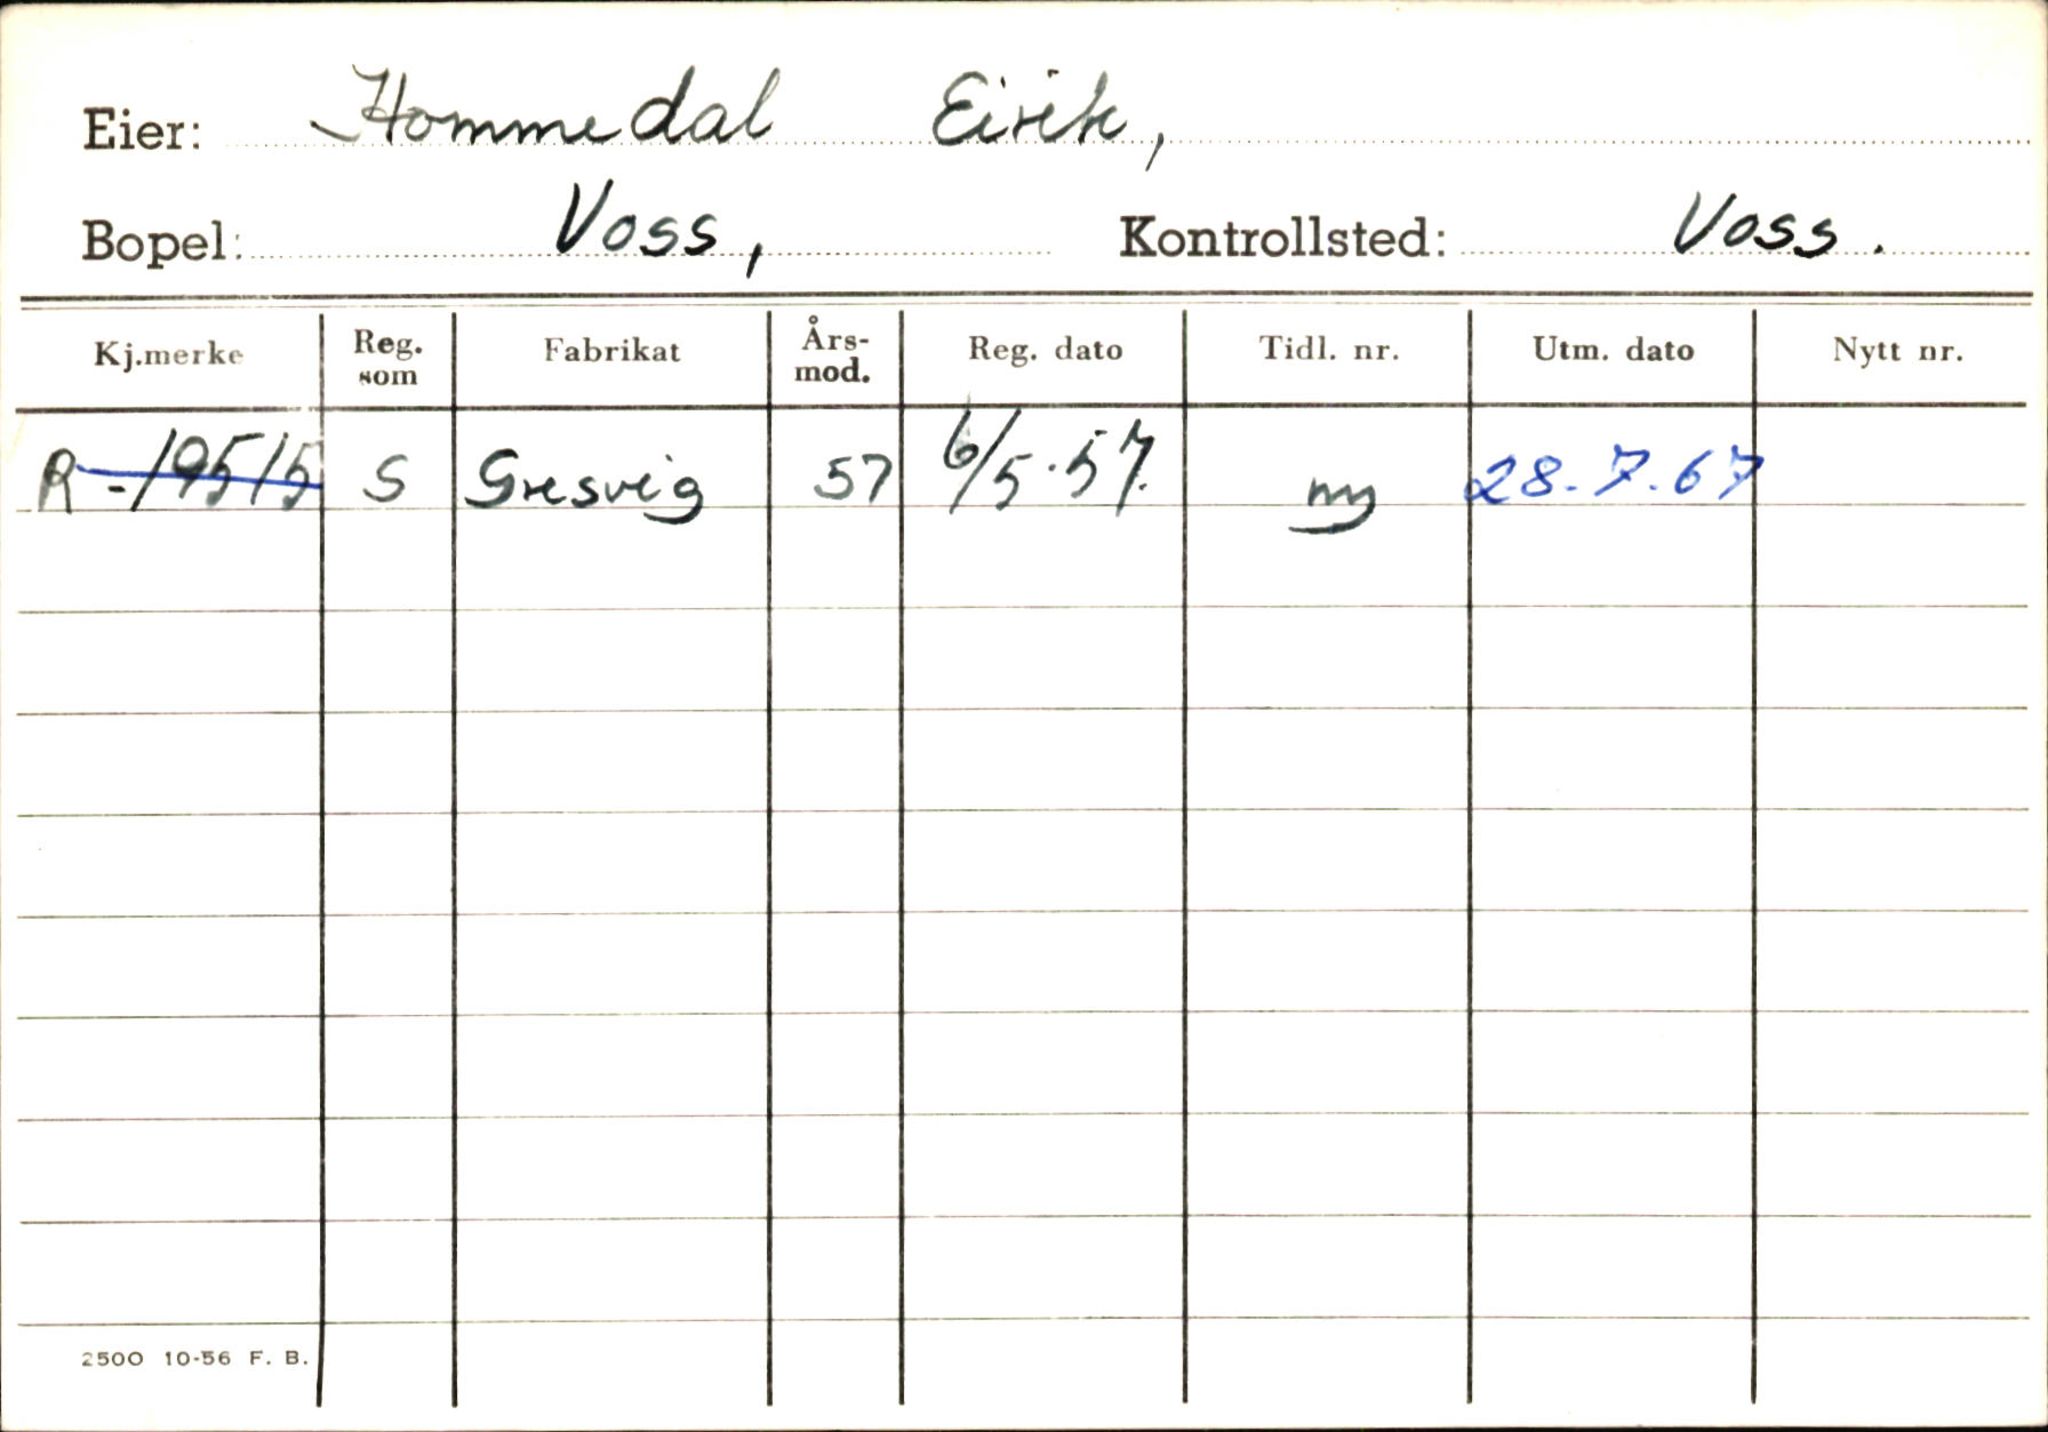 Eier: Hommedal Eirik,
Bopel: Voss, Kontrollsted: Voss.
Kj.merke Reg. som Fabrikat Års-mod. Reg. dato Tidl. nr. Utm. dato Nytt nr.
R-19515 S Gresvig 57 6/5.57. ny 28.7.67
2500 10-56 F. B.